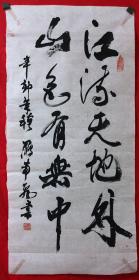 江流天地外
山色有無中
辛卯
書